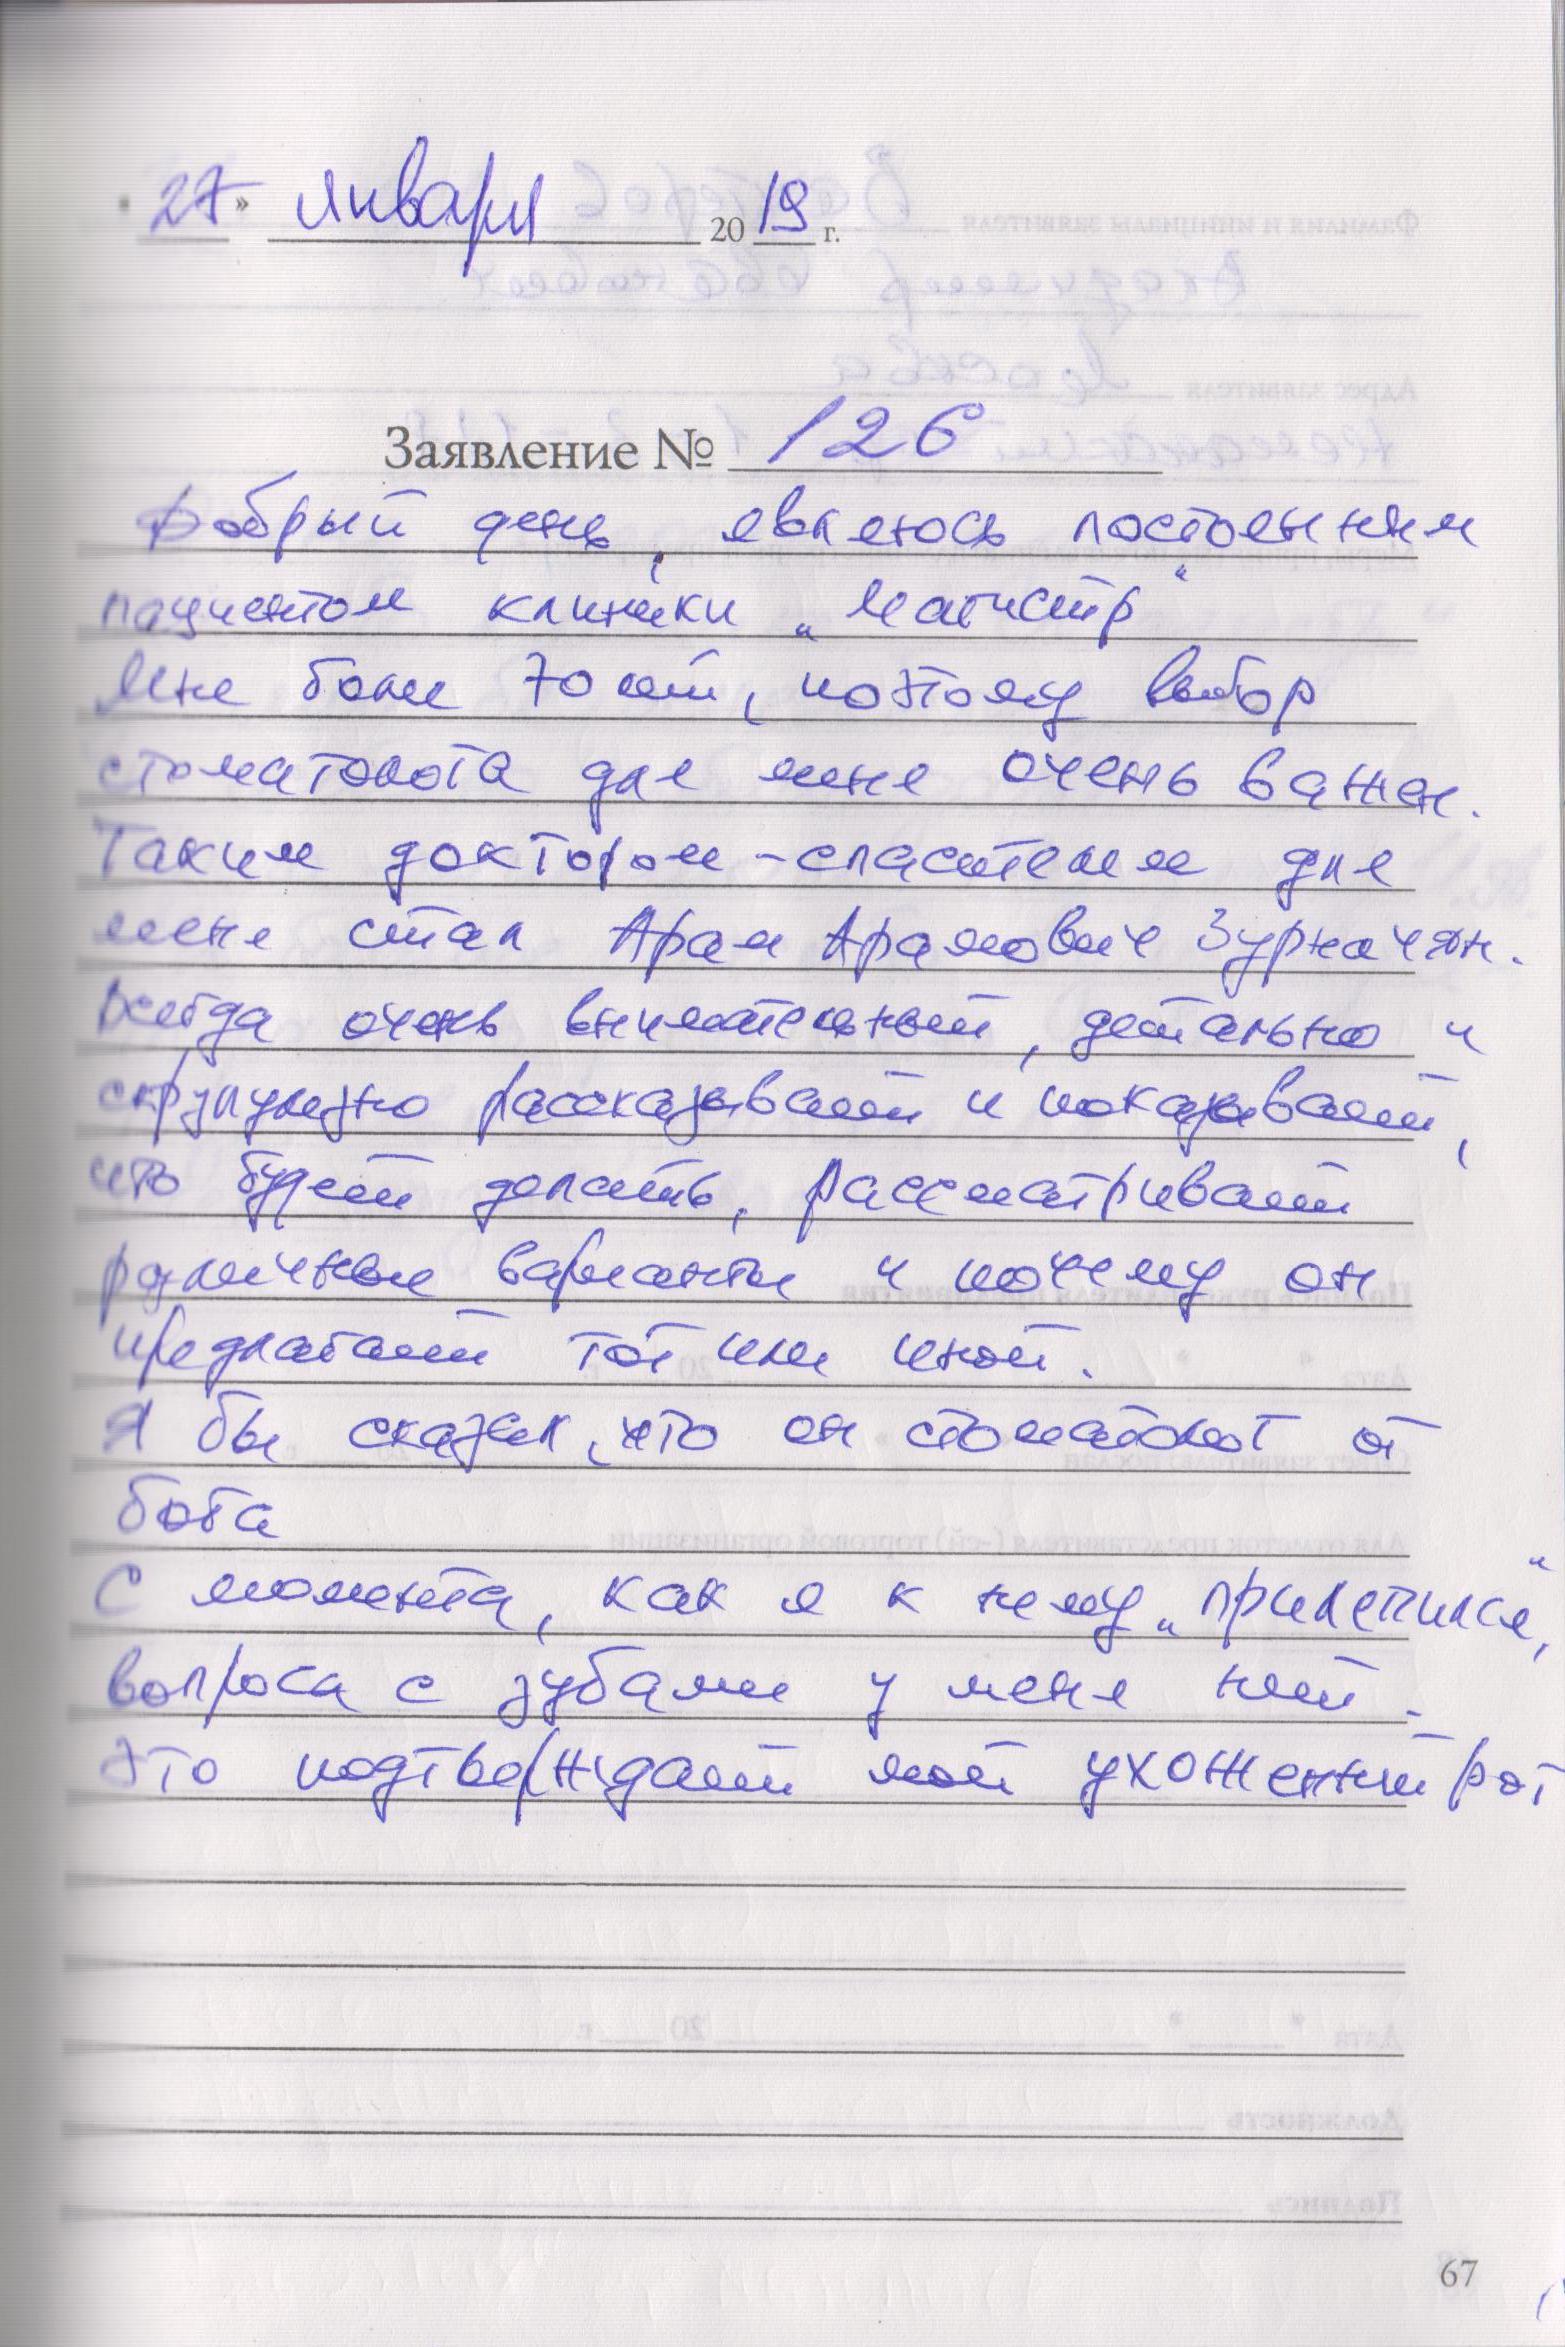 « 27 » января 2019 г.
Заявление № 126
Добрый день, являюсь постоянным
пациентом клиники „Магистр"
Мне более 70 лет, поэтому выбор
стоматолога для меня очень важен.
Таким доктором-спасителем для
меня стал Арам Арамович Зурначян.
Всегда очень внимательный, детально и
скрупулезно рассказывает и показывает,
что будет делать, рассматривает
различные варианты и почему он
предлагает тот или иной.
Я бы сказал, что он стоматолог от
бога
С момента, как я к нему „прилепился",
вопроса с зубами у меня нет.
Это подтверждает мой ухоженный рот
67